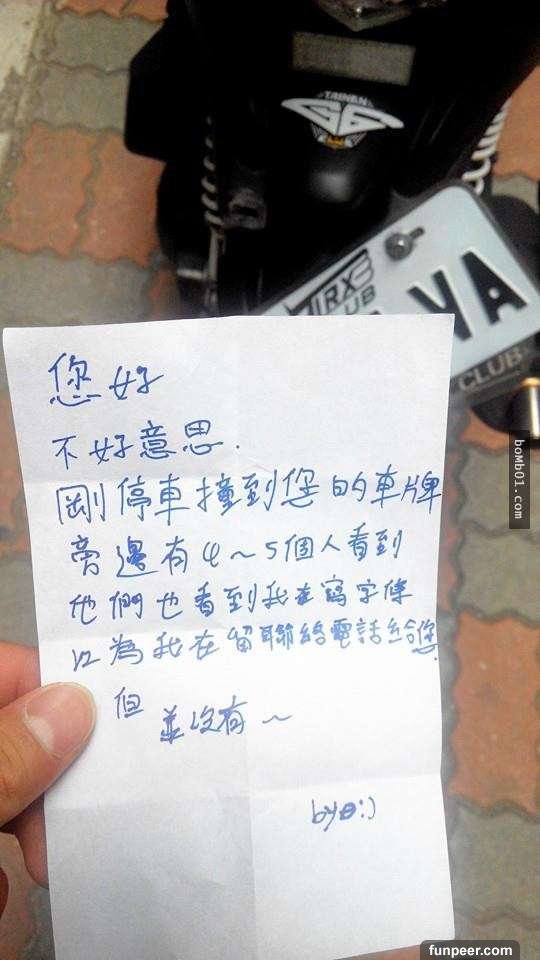 TAINAN
G6
ZIRX
CLUB
VA
CLUB
您好
不好意思.
剛停車撞到您的車牌
旁邊有4～5個人看到
他們也看到我在寫字條
以為我在留聯絡電話給您.
但
並沒有～
by e:)
boMb01.com
funpeer.com